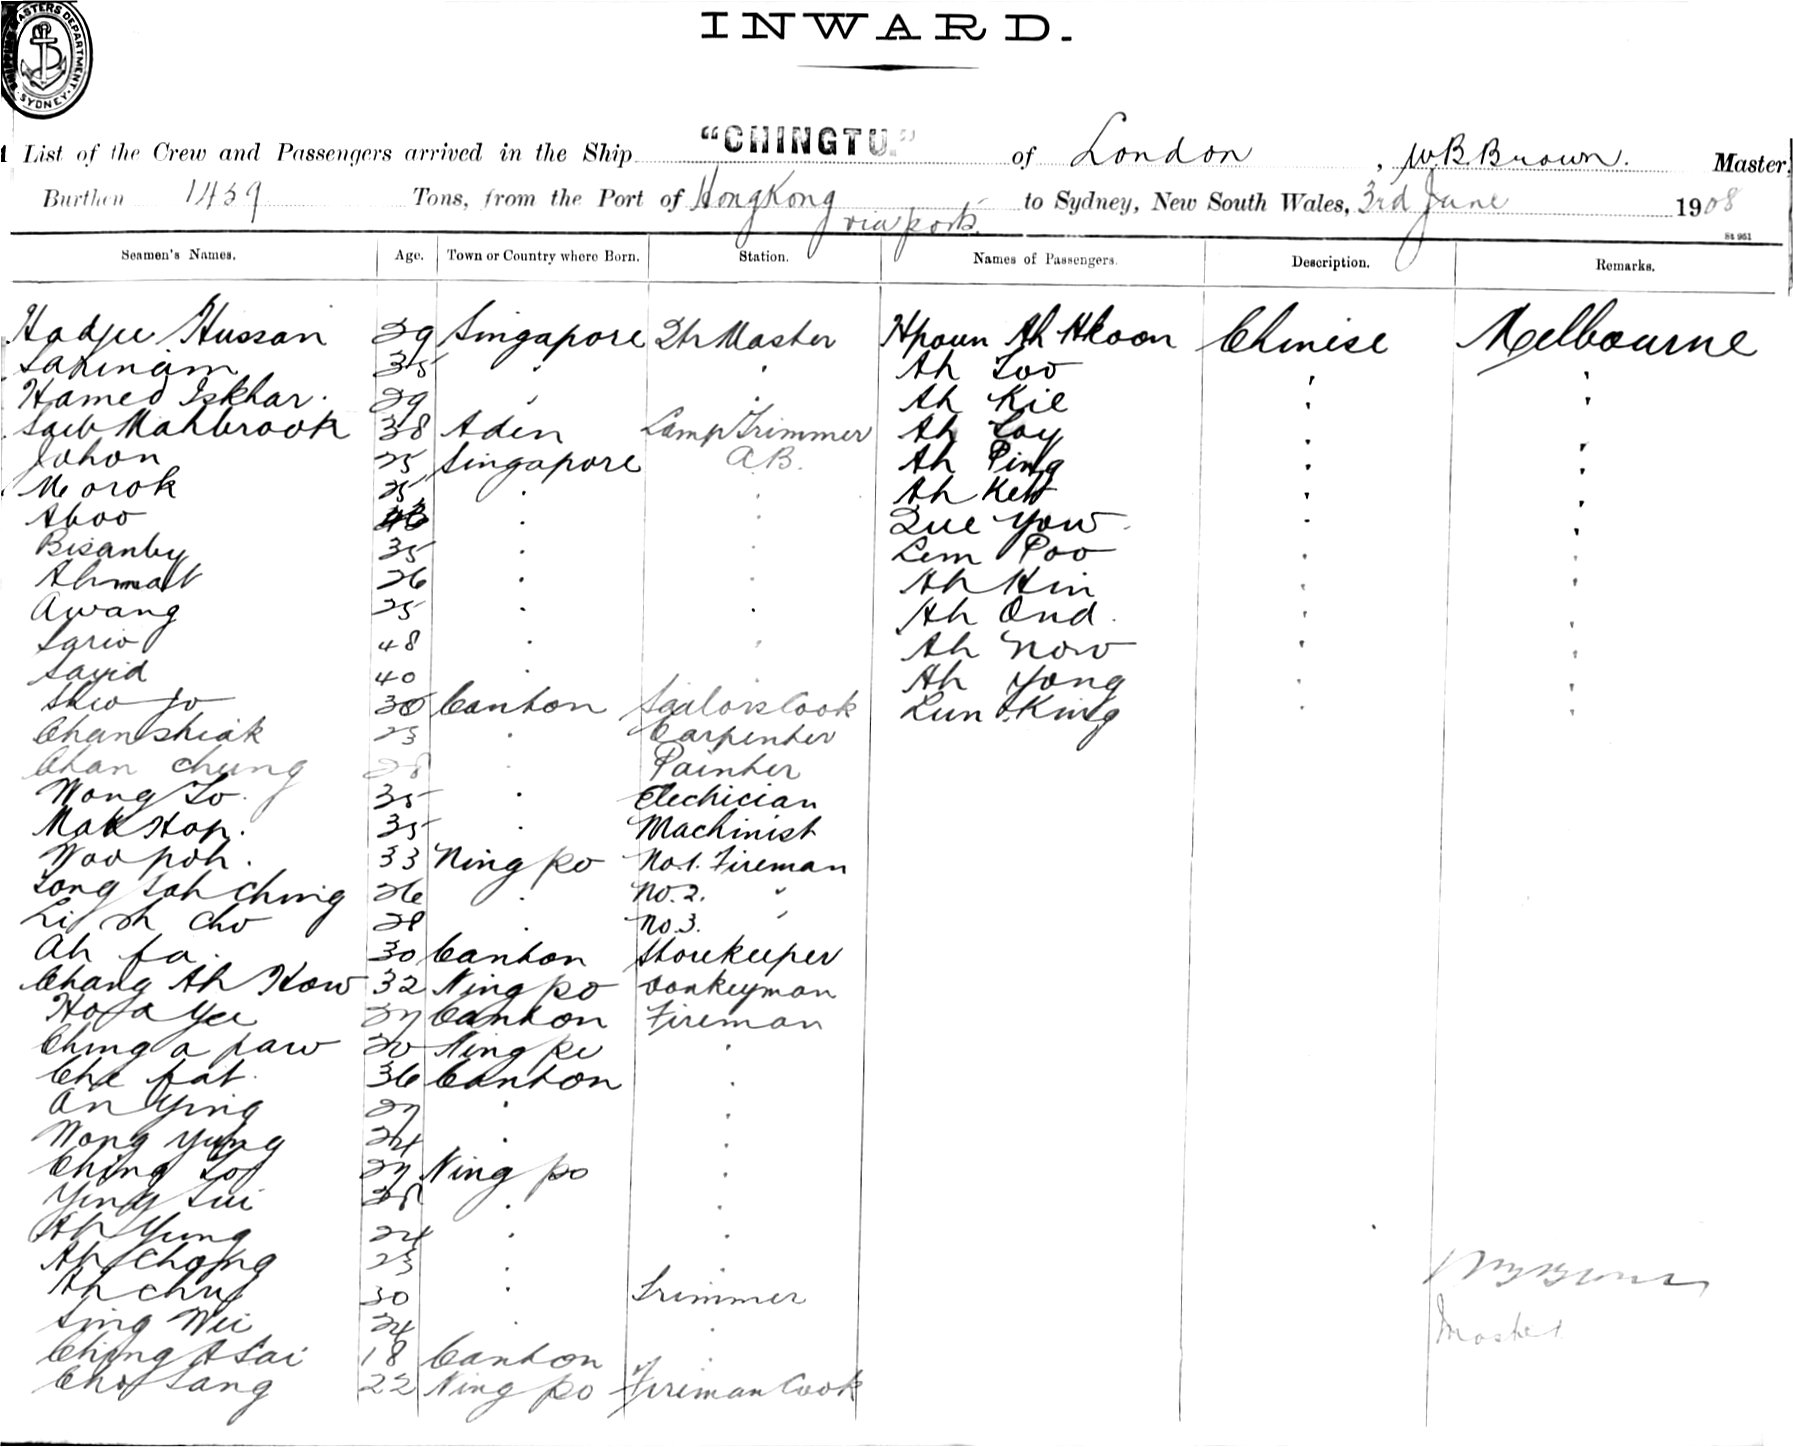 INWARD.
SHIPPING MASTERS DEPARTMENT. SYDNEY.
List of the Crew and Passengers arrived in the Ship "CHINGTU." of London, W.B. Brown. Master,
Burthen 1439 Tons, from the Port of HongKong via ports to Sydney, New South Wales, 3rd June 1908
St 951
Seamen's Names. Age. Town or Country where Born. Station. Names of Passengers. Description. Remarks.
Hadjee Hussan 29 Singapore Qtr Master Ah Chinese Melbourne
35 " " Ah Too " "
Hamed Iskhar. 29 " " Ah Kie " "
Saib Mahbrook 38 Aden Lamp Trimmer Ah Loy " "
Johon 25 Singapore A.B. Ah Ping " "
Morok 25 " " Ah " "
Aboo " " Que Yow " "
Bisanby 35 " " Lem Poo " "
Ahmat 26 " " Ah Hin " "
Awang 25 " " Ah Ond " "
Sario 48 " " Ah Now " "
Sayid 40 " Ah Yong " "
30 Canton Sailors Cook Lun King " "
Chan Shiak 23 " Carpenter
Chan Chung 28 " Painter
Wong To. 35 " Electrician
Mak Hop. 35 " Machinist
Woo poh. 33 Ning po No.1. Fireman
Tong Sah Ching 26 " No.2. "
Li Cho 28 " No.3. "
Ah fa. 30 Canton Storekeeper
Chang Ah Kow 32 Ning po Donkeyman
Ho a Yee 27 Canton Fireman
Ching a paw 20 Ning po "
Che fat. 36 Canton "
An Ying 27 " "
Wong Yung 24 " "
Ching 27 Ning po "
Ying Sui 28 " "
Ah Yung 24 " "
Ah Chong 23 " "
Ah 30 " Trimmer
Sing Wei 24 " "
Ching A Sai 18 Canton "
Sang 22 Ning po Fireman Cook
WB Brown
Master